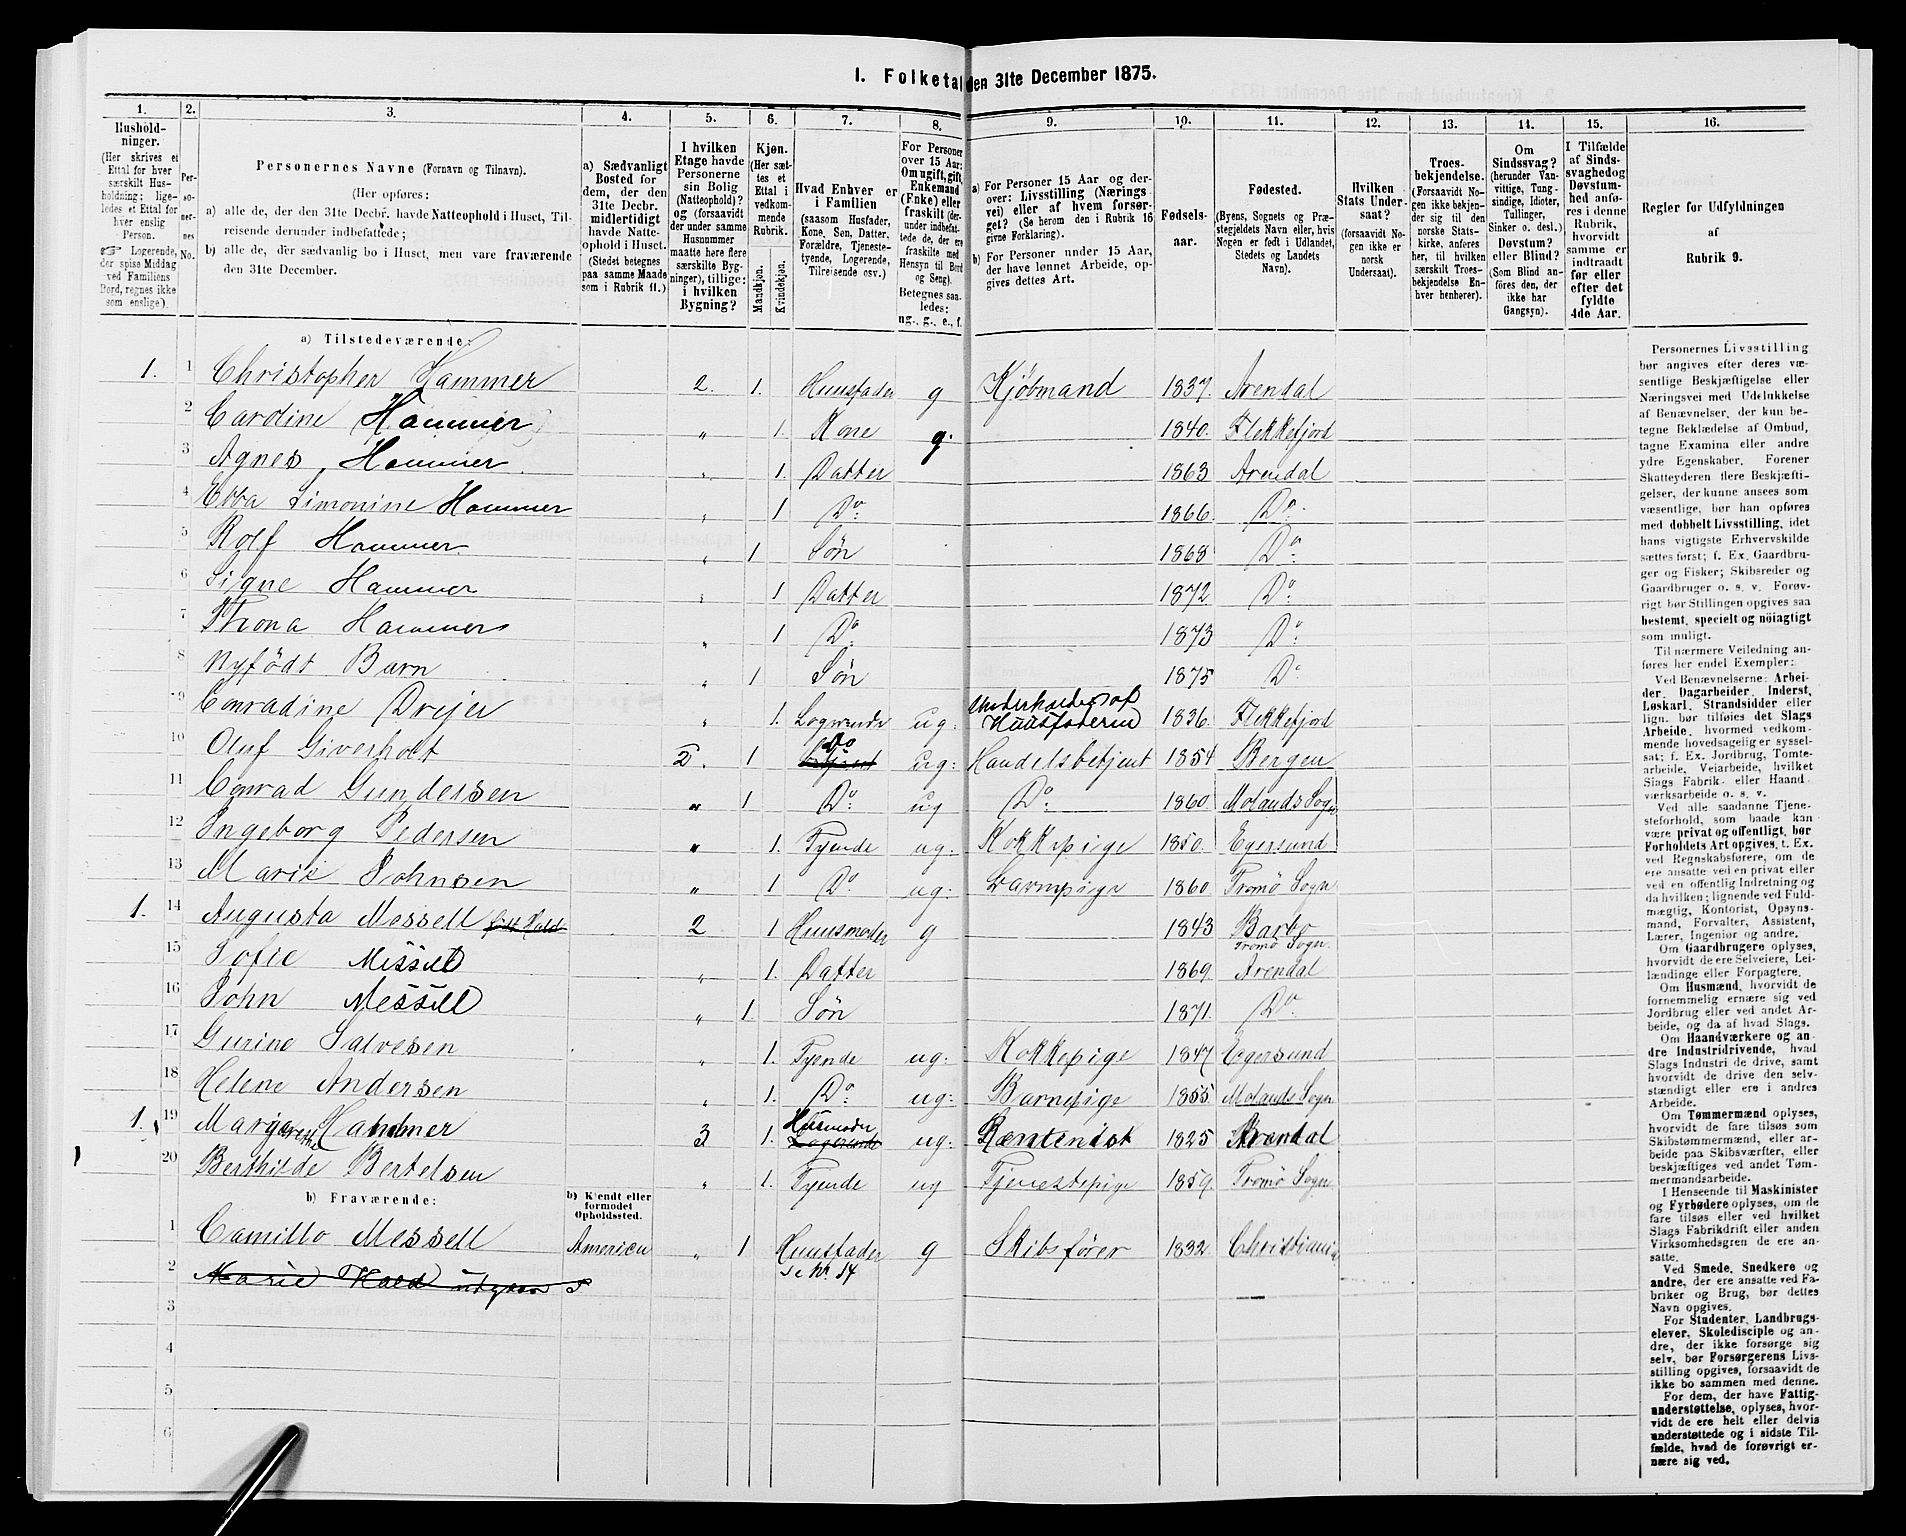 1. Folketal den 31te December 1875.
1. 2. 3. 4. 5. 6. 7. 8. 9. 10. 11. 12. 13. 14. 15. 16.
Hushold-
ninger.
(Her skrives et
Ettal for hver
særskilt Hus-
holdning; lige-
ledes et Ettal for
hver enslig
Person.
☞ Logerende,
der spise Middag
ved Familiens
Bord, regnes ikke
som enslige).
Per-
so-
ner-
nes
No.
Personernes Navne (Fornavn og Tilnavn).
(Her opføres:
a) alle de, der den 31te Decbr. havde Natteophold i Huset, Til-
reisende derunder indbefattede;
b) alle de, der sædvanlig bo i Huset, men vare fraværende
den 31te December.
a) Sædvanligt
Bosted for
dem, der den
31te Decbr.
midlertidigt
havde Natte-
ophold i Huset.
(Stedet betegnes
paa samme Maade
som i Rubrik 11.)
I hvilken
Etage havde
Personerne
sin Bolig
(Natteophold)?
og (forsaavidt
der under samme
Husnummer
maatte høre flere
særskilte Byg-
ninger), tillige:
i hvilken
Bygning?
Kjøn.
(Her sæt-
tes et
Ettal i
vedkom-
mende
Rubrik.
Mandkjøn.
Kvindekjøn.
Hvad Enhver er
i Familien
(saasom Husfader,
Kone, Søn, Datter,
Forældre, Tjeneste-
tyende, Logerende,
Tilreisende osv.)
For Personer
over 15 Aar:
Om ugift, gift,
Enkemand
(Enke) eller
fraskilt (der-
under indbefat-
tede de, der ere
fraskilte med
Hensyn til Bord
og Seng).
Betegnes saa-
ledes:
ug., g., e., f.
a) For Personer 15 Aar og der-
over: Livsstilling (Nærings
vei) eller af hvem forsør-
get? (Se herom den i Rubrik 16
givne Forklaring).
b) For Personer under 15 Aar,
der have lønnet Arbeide, op-
gives dettes Art.
Fødsels-
aar.
Fødested.
(Byens, Sognets og Præ-
stegjeldets Navn eller, hvis
Nogen er født i Udlandet,
Stedets og Landets
Navn).
Hvilken
Stats Under-
saat?
(forsaavidt No-
gen ikke er
norsk
Undersaat).
Troes-
bekjendelse.
(Forsaavidt No-
gen ikke bekjen-
der sig til den
norske Stats-
kirke, anføres
her, til hvilken
særskilt Troes-
bekjendelse En-
hver henhører).
Om
Sindssvag?
(herunder Van-
vittige, Tung-
sindige, Idioter,
Tullinger,
Sinker o. desl.)
Døvstum?
eller Blind?
(Som Blind an-
føres den, der
ikke har
Gangsyn).
I Tilfælde
af Sinds-
svaghed og
Døvstum-
hed anfø-
res i denne
Rubrik,
hvorvidt
samme er
indtraadt
før eller
efter det
fyldte
4de Aar.
Regler for Udfyldningen
af
Rubrik 9.
a) Tilstedeværende:
1. 1 Christopher Hammer 2. 1. Huusfader g Kjøbmand 1837. Arendal
2 Caroline Hammer „ 1. Kone g. 1840. Flekkefjord
3 Agnes Hammer „ 1. Datter 1863 Arendal
4 Ebba Simonine Hammer „ 1 Do 1866. Do
5 Rolf Hammer „ 1 Søn 1868 Do
6 Signe Hammer „ 1 Datter 1872 Do
7 Thona Hammer „ 1 Do 1873 Do
8 Nyfødt Barn „ 1 Søn 1875 Do
9 Conradine Drejer „ 1. Logerende ug: Underholdes af Huusfaderen 1836. Flekkefjord
10 Oluf Giverholt 2. 1 Do ug: Handelsbetjent 1854 Bergen
11 Conrad Gundersen „ 1 Do ug Do 1860. Molands Sogn
12 Ingeborg Pedersen „ 1. Tyende ug: Kokkepige 1850. Egersund
13 Marie Johnsen „ 1 Do ug: Barnepige 1860 Tromø Sogn
1. 14 Augusta Messell født Hald 2 1 Huusmoder g 1843 Barbo
Tromø Sogn
15 Sofie Messell „ 1. Datter 1869. Arendal
16 John Messell „ 1. Søn 1871. Do
17 Gurine Salvesen „ 1. Tyende ug: Kokkepige 1847 Egersund
18 Helene Andersen „ 1. Do ug: Barnepige 1855 Molands Sogn
1. 19 Margarethe Hammer 3 1. Husmoder Logerende ug: Rentenist 1825 Arendal
20 Berthilde Bertelsen „ 1. Tyende ug Tjenestepige 1859. Tromø Sogn
b) Fraværende:
b) Kjendt eller
formodet
Opholdssted.
1 Camillo Messell America „ 1 Huusfader g Skibsfører 1832 Christiania
se Nr. 14
2 Marie Hald udgaar
3
4
5
6
Personernes Livsstilling
bør angives efter deres væ-
sentlige Beskjæftigelse eller
Næringsvei med Udelukkelse
af Benævnelser, der kun be-
tegne Beklædelse af Ombud,
tagne Examina eller andre
ydre Egenskaber. Forener
Skatteyderen flere Beskjæfti-
gelser, der kunne ansees som
væsentlige, bør han opføres
med dobbelt Livsstilling, idet
hans vigtigste Erhvervskilde
sættes først; f. Ex. Gaardbru-
ger og Fisker; Skibsreder og
Gaardbruger o. s. v. Forøv-
rigt bør Stillingen opgives saa
bestemt, specielt og nöiagtigt
som muligt.
Til nærmere Veiledning an-
føres her endel Exempler:
Ved Benævnelserne: Arbei-
der, Dagarbeider, Inderst,
Løskarl, Strandsidder eller
lign. bør tilføies det Slags
Arbeide, hvormed vedkom-
mende hovedsagelig er syssel-
sat; f. Ex. Jordbrug, Tomte-
arbeide, Veiarbeide, hvilket
Slags Fabrik- eller Haand
værksarbeide o. s. v.
Ved alle saadanne Tjene-
steforhold, som baade kan
være privat og offentligt, bør
Forholdets Art opgives, t. Ex.
ved Regnskabsførere, om de
ere ansatte ved en privat eller
ved en offentlig Indretning og
da hvilken; lignende ved Fuld-
mægtig, Kontorist, Opsyns-
mand, Forvalter, Assistent,
Lærer, Ingeniør og andre.
Om Gaardbrugere oplyses,
hvorvidt de ere Selveiere, Lei-
lændinge eller Forpagtere.
Om Husmænd, hvorvidt de
fornemmelig ernære sig ved
Jordbrug eller ved andet Ar-
beide, og da af hvad Slags.
Om Haandværkere og an-
dre Industridrivende, hvad
Slags Industri de drive, samt
hvorvidt de drive den selv-
stændigt eller ere i andres
Arbeide.
Om Tømmermænd oplyses,
hvorvidt de fare tilsøs som
Skibstømmermænd, eller ar-
beide paa Skibsværfter, eller
beskjæftiges ved andet Tøm-
mermandsarbeide.
I Henseende til Maskinister
og Fyrbødere oplyses, om de
fare tilsøs eller ved hvilket
Slags Fabrikdrift eller anden
Virksomhedsgren de ere an-
satte.
Ved Smede, Snedkere og
andre, der ere ansatte ved Fa-
briker og Brug, bør dettes
Navn opgives.
For Studenter, Landbrugs-
elever, Skoledisciple og an-
dre, der ikke forsørge sig
selv, bør Forsørgerens Livs-
stilling opgives, forsaavidt de
ikke bo sammen med denne.
For dem, der have Fattig-
understøttelse, oplyses, hvor-
vidt de ere helt eller delvis
understøttede og i sidste Til-
fælde, hvad de forøvrigt er-
nære sig ved.